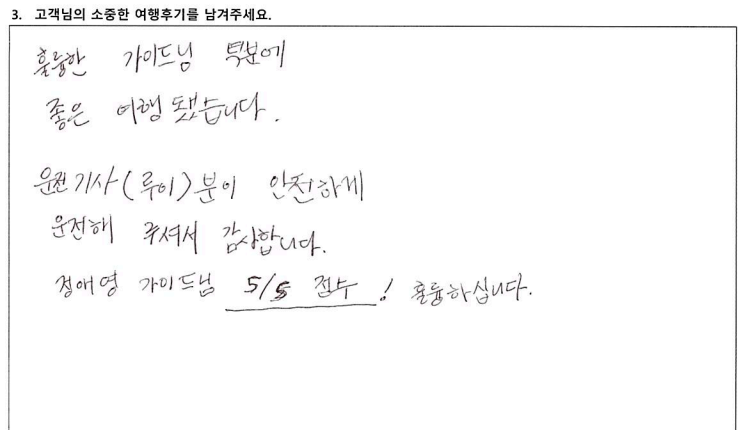 3. 고객님의 소중한 여행후기를 남겨주세요.
훌륭한 가이드님 턱분에
좋은 여행 됐습니다.
운전기사(루이)분이 안전하게
운전해 주셔서 감사합니다.
정애영 가이드님 5/5 점수! 훌륭하십니다.